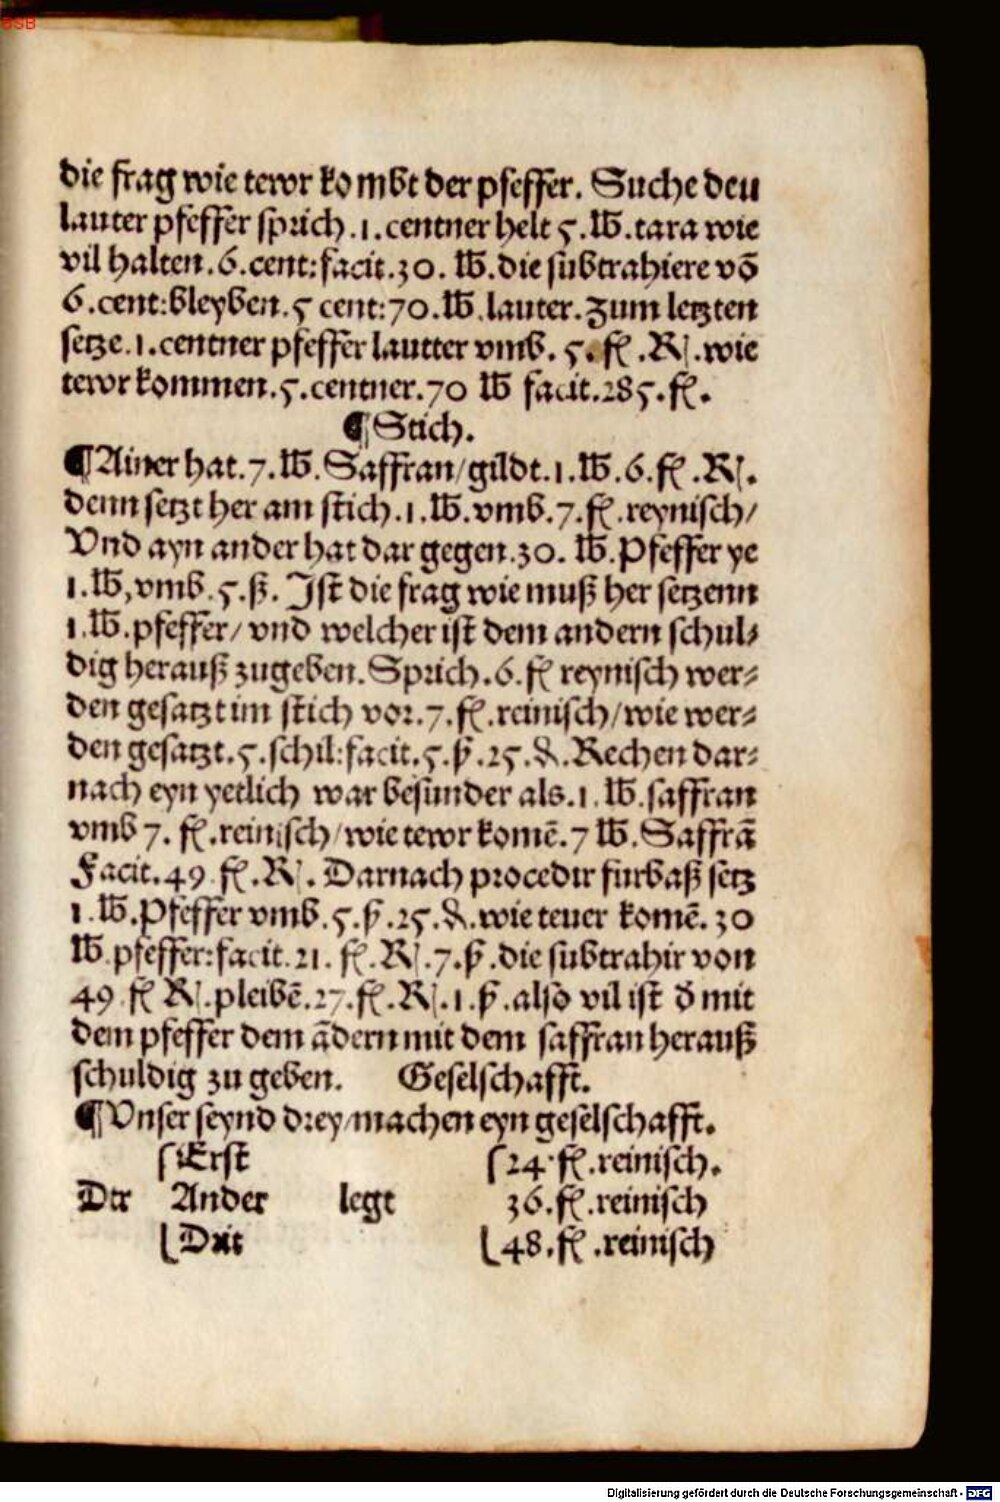 BSB
die frag wie tewr kombt der pfeffer. Suche deu
lauter pfeffer sprich.1.centner helt 5.lb.tara wie
vil halten.6.cent:facit.30. lb.die subtrahiere võ
6.cent:bleyben.5 cent:70.lb.lauter.Zum letzten
setze.1.centner pfeffer lautter vmb. 5.fl.R.wie
tewr kommen.5.centner.70 lb facit.285.fl.
¶Stich.
¶Ainer hat.7.lb.Saffran/gildt.1.lb.6.fl.R.
denn setzt her am stich.1.lb.vmb.7.fl.reynisch/
Vnd ayn ander hat dar gegen.30. lb.Pfeffer ye
1.lb,vmb.5.ß. Ist die frag wie muß her setzenn
1.lb.pfeffer/ vnd welcher ist dem andern schul⸗
dig herauß zugeben.Sprich.6.fl reynisch wer⸗
den gesatzt im stich vor.7.fl.reinisch/wie wer⸗
den gesatzt.5.schil:facit.5.ß.25.₰.Rechen dar⸗
nach eyn yetlich war besunder als.1.lb.saffran
vmb 7. fl.reinisch/wie tewr komẽ.7 lb.Saffrã
Facit.49 fl.R. Darnach procedir furbaß setz
1.lb.Pfeffer vmb.5.ß.25.₰.wie teuer komẽ.30
lb.pfeffer:facit.21. fl.R.7.ß.die subtrahir von
49.fl R.pleibẽ.27.fl.R.1.ß.also vil ist d̄ mit
dem pfeffer dem ãdern mit dem saffran herauß
schuldig zu geben. Geselschafft.
¶Vnser seynd drey/machen eyn geselschafft.
Erst 24.fl.reinisch.
Der Ander legt 36.fl.reinisch
Drit 48.fl.reinisch
Digitalisierung gefördert durch die Deutsche Forschungsgemeinschaft - DFG